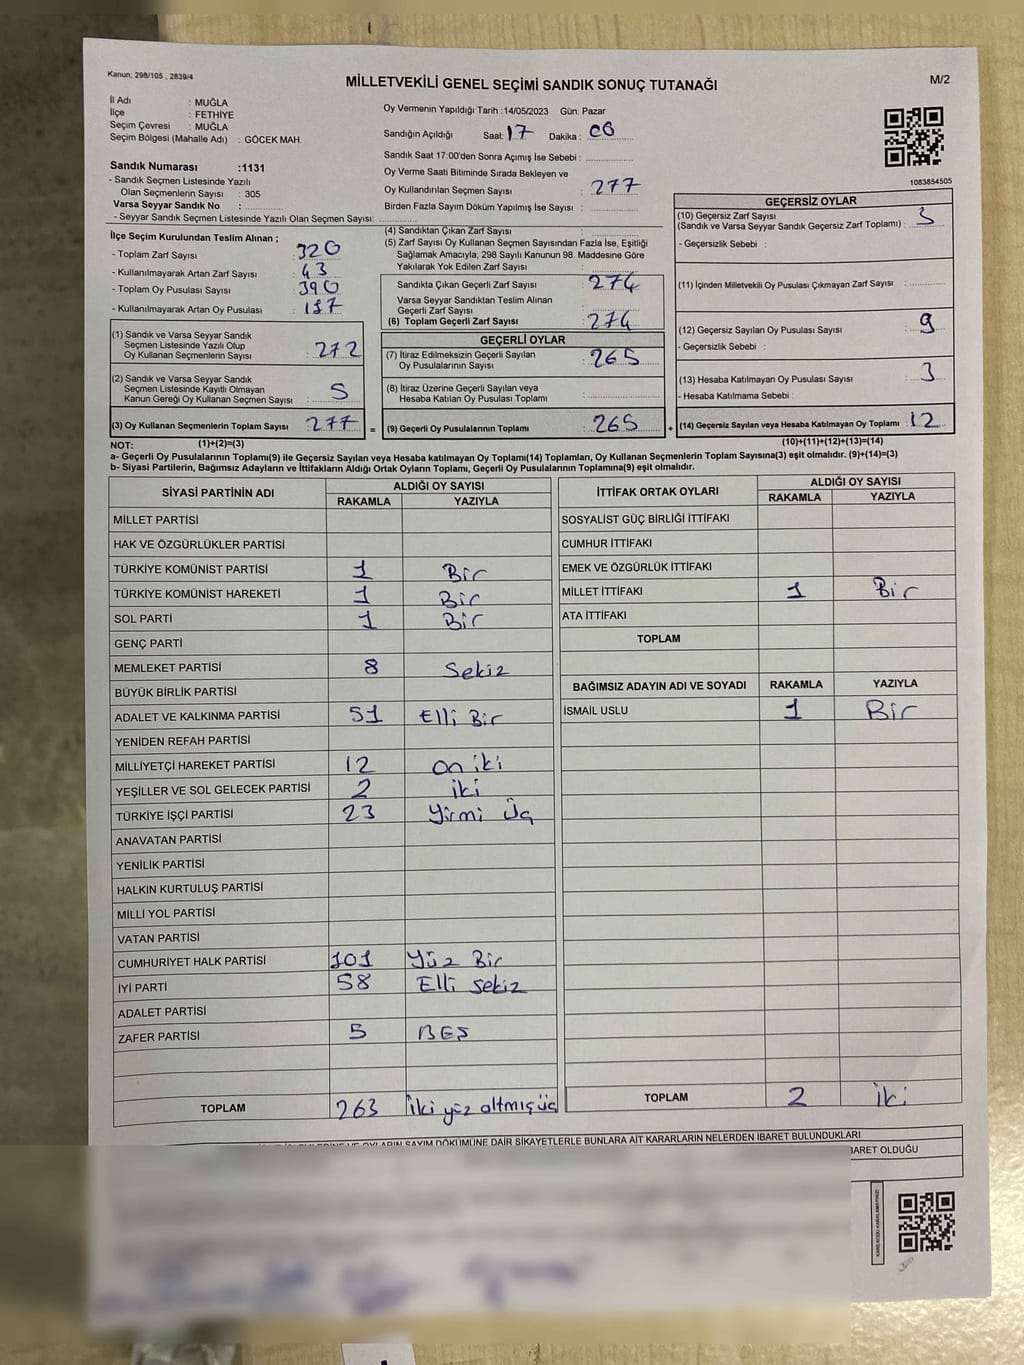 Kanun; 298/105 , 2839/4
MİLLETVEKİLİ GENEL SEÇİMİ SANDIK SONUÇ TUTANAĞI
M/2
İl Adı : MUĞLA
İlçe : FETHİYE
Seçim Çevresi : MUĞLA
Seçim Bölgesi (Mahalle Adı) : GÖCEK MAH.
Sandık Numarası :1131
- Sandık Seçmen Listesinde Yazılı
Olan Seçmenlerin Sayısı : 305
Varsa Seyyar Sandık No :
- Seyyar Sandık Seçmen Listesinde Yazılı Olan Seçmen Sayısı:
Oy Vermenin Yapıldığı Tarih :14/05/2023 Gün: Pazar
Sandığın Açıldığı Saat: 17 Dakika: 06
Sandık Saat 17:00'den Sonra Açımış İse Sebebi :
Oy Verme Saati Bitiminde Sırada Bekleyen ve
Oy Kullandırılan Seçmen Sayısı : 277
Birden Fazla Sayım Döküm Yapılmış İse Sayısı :
1083854505
İlçe Seçim Kurulundan Teslim Alınan ;
- Toplam Zarf Sayısı : 320
- Kullanılmayarak Artan Zarf Sayısı : 43
- Toplam Oy Pusulası Sayısı : 390
- Kullanılmayarak Artan Oy Pusulası :
(1) Sandık ve Varsa Seyyar Sandık
Seçmen Listesinde Yazılı Olup
Oy Kullanan Seçmenlerin Sayısı : 272
(2) Sandık ve Varsa Seyyar Sandık
Seçmen Listesinde Kayıtlı Olmayan
Kanun Gereği Oy Kullanan Seçmen Sayısı : 5
(3) Oy Kullanan Seçmenlerin Toplam Sayısı : 277
(4) Sandıktan Çıkan Zarf Sayısı :
(5) Zarf Sayısı Oy Kullanan Seçmen Sayısından Fazla İse, Eşitliği
Sağlamak Amacıyla; 298 Sayılı Kanunun 98. Maddesine Göre
Yakılarak Yok Edilen Zarf Sayısı :
Sandıkta Çıkan Geçerli Zarf Sayısı : 274
Varsa Seyyar Sandıktan Teslim Alınan
Geçerli Zarf Sayısı :
(6) Toplam Geçerli Zarf Sayısı : 274
GEÇERLİ OYLAR
(7) İtiraz Edilmeksizin Geçerli Sayılan
Oy Pusulalarının Sayısı : 265
(8) İtiraz Üzerine Geçerli Sayılan veya
Hesaba Katılan Oy Pusulası Toplamı :
= (9) Geçerli Oy Pusulalarının Toplamı : 265 +
GEÇERSİZ OYLAR
(10) Geçersiz Zarf Sayısı
(Sandık ve Varsa Seyyar Sandık Geçersiz Zarf Toplamı) :
- Geçersizlik Sebebi :
(11) İçinden Milletvekili Oy Pusulası Çıkmayan Zarf Sayısı :
(12) Geçersiz Sayılan Oy Pusulası Sayısı : 9
- Geçersizlik Sebebi :
(13) Hesaba Katılmayan Oy Pusulası Sayısı : 3
- Hesaba Katılmama Sebebi :
(14) Geçersiz Sayılan veya Hesaba Katılmayan Oy Toplamı : 12
NOT: (1)+(2)=(3)
(10)+(11)+(12)+(13)=(14)
a- Geçerli Oy Pusulalarının Toplamı(9) ile Geçersiz Sayılan veya Hesaba katılmayan Oy Toplamı(14) Toplamları, Oy Kullanan Seçmenlerin Toplam Sayısına(3) eşit olmalıdır. (9)+(14)=(3)
b- Siyasi Partilerin, Bağımsız Adayların ve İttifakların Aldığı Ortak Oyların Toplamı, Geçerli Oy Pusulalarının Toplamına(9) eşit olmalıdır.
SİYASİ PARTİNİN ADI ALDIĞI OY SAYISI
RAKAMLA YAZIYLA
MİLLET PARTİSİ
HAK VE ÖZGÜRLÜKLER PARTİSİ
TÜRKİYE KOMÜNİST PARTİSİ 1 Bir
TÜRKİYE KOMÜNİST HAREKETİ 1 Bir
SOL PARTİ 1 Bir
GENÇ PARTİ
MEMLEKET PARTİSİ 8 Sekiz
BÜYÜK BİRLİK PARTİSİ
ADALET VE KALKINMA PARTİSİ 51 Elli Bir
YENİDEN REFAH PARTİSİ
MİLLİYETÇİ HAREKET PARTİSİ 12 on iki
YEŞİLLER VE SOL GELECEK PARTİSİ 2 iki
TÜRKİYE İŞÇİ PARTİSİ 23 Yirmi Üç
ANAVATAN PARTİSİ
YENİLİK PARTİSİ
HALKIN KURTULUŞ PARTİSİ
MİLLİ YOL PARTİSİ
VATAN PARTİSİ
CUMHURİYET HALK PARTİSİ 101 Yüz Bir
İYİ PARTİ 58 Elli sekiz
ADALET PARTİSİ
ZAFER PARTİSİ 5 BEŞ
TOPLAM 263 İki yüz altmış üç
İTTİFAK ORTAK OYLARI ALDIĞI OY SAYISI
RAKAMLA YAZIYLA
SOSYALİST GÜÇ BİRLİĞİ İTTİFAKI
CUMHUR İTTİFAKI
EMEK VE ÖZGÜRLÜK İTTİFAKI
MİLLET İTTİFAKI 1 Bir
ATA İTTİFAKI
TOPLAM
BAĞIMSIZ ADAYIN ADI VE SOYADI RAKAMLA YAZIYLA
İSMAİL USLU 1 Bir
TOPLAM 2 İki
OYLARIN SAYIM DÖKÜMÜNE DAİR ŞİKAYETLERLE BUNLARA AİT KARARLARIN NELERDEN İBARET BULUNDUKLARI
BARET OLDUĞU